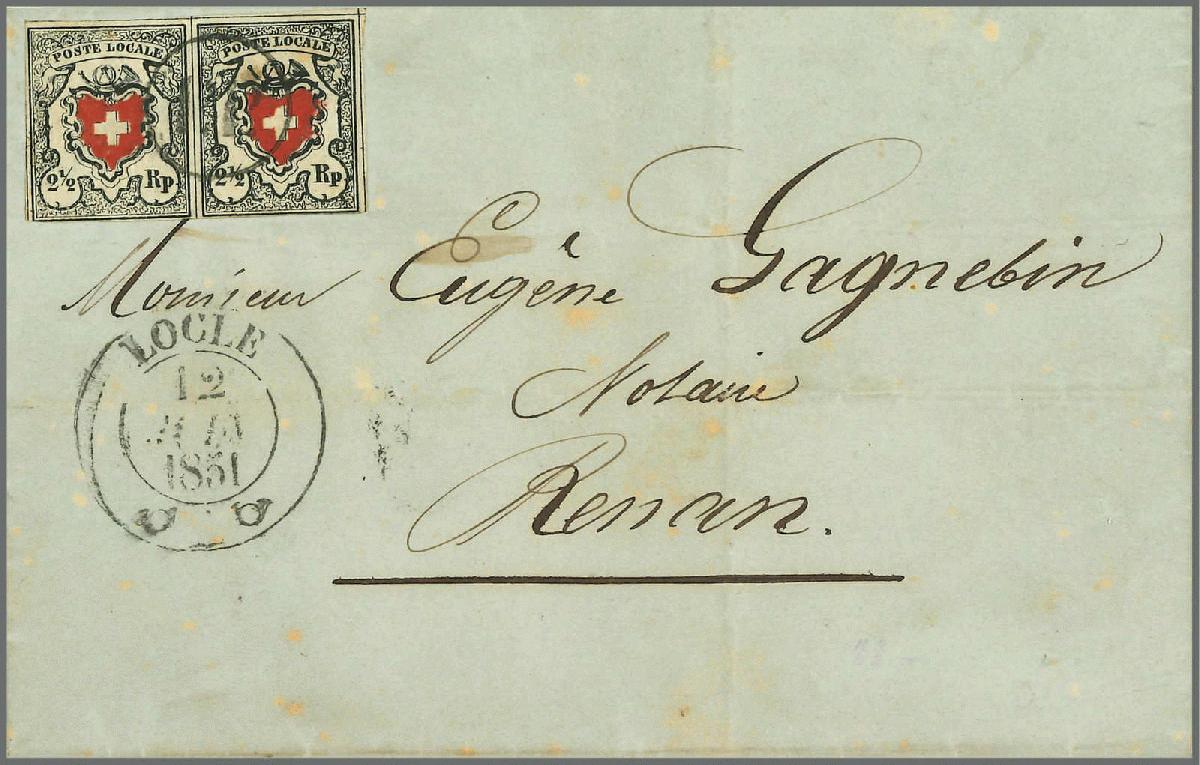 POSTE LOCALE
2½ Rp
POSTE LOCALE
2½ Rp
Monsieur Eugène Gagnebin
Notaire
Renan.
LOCLE
12
1851